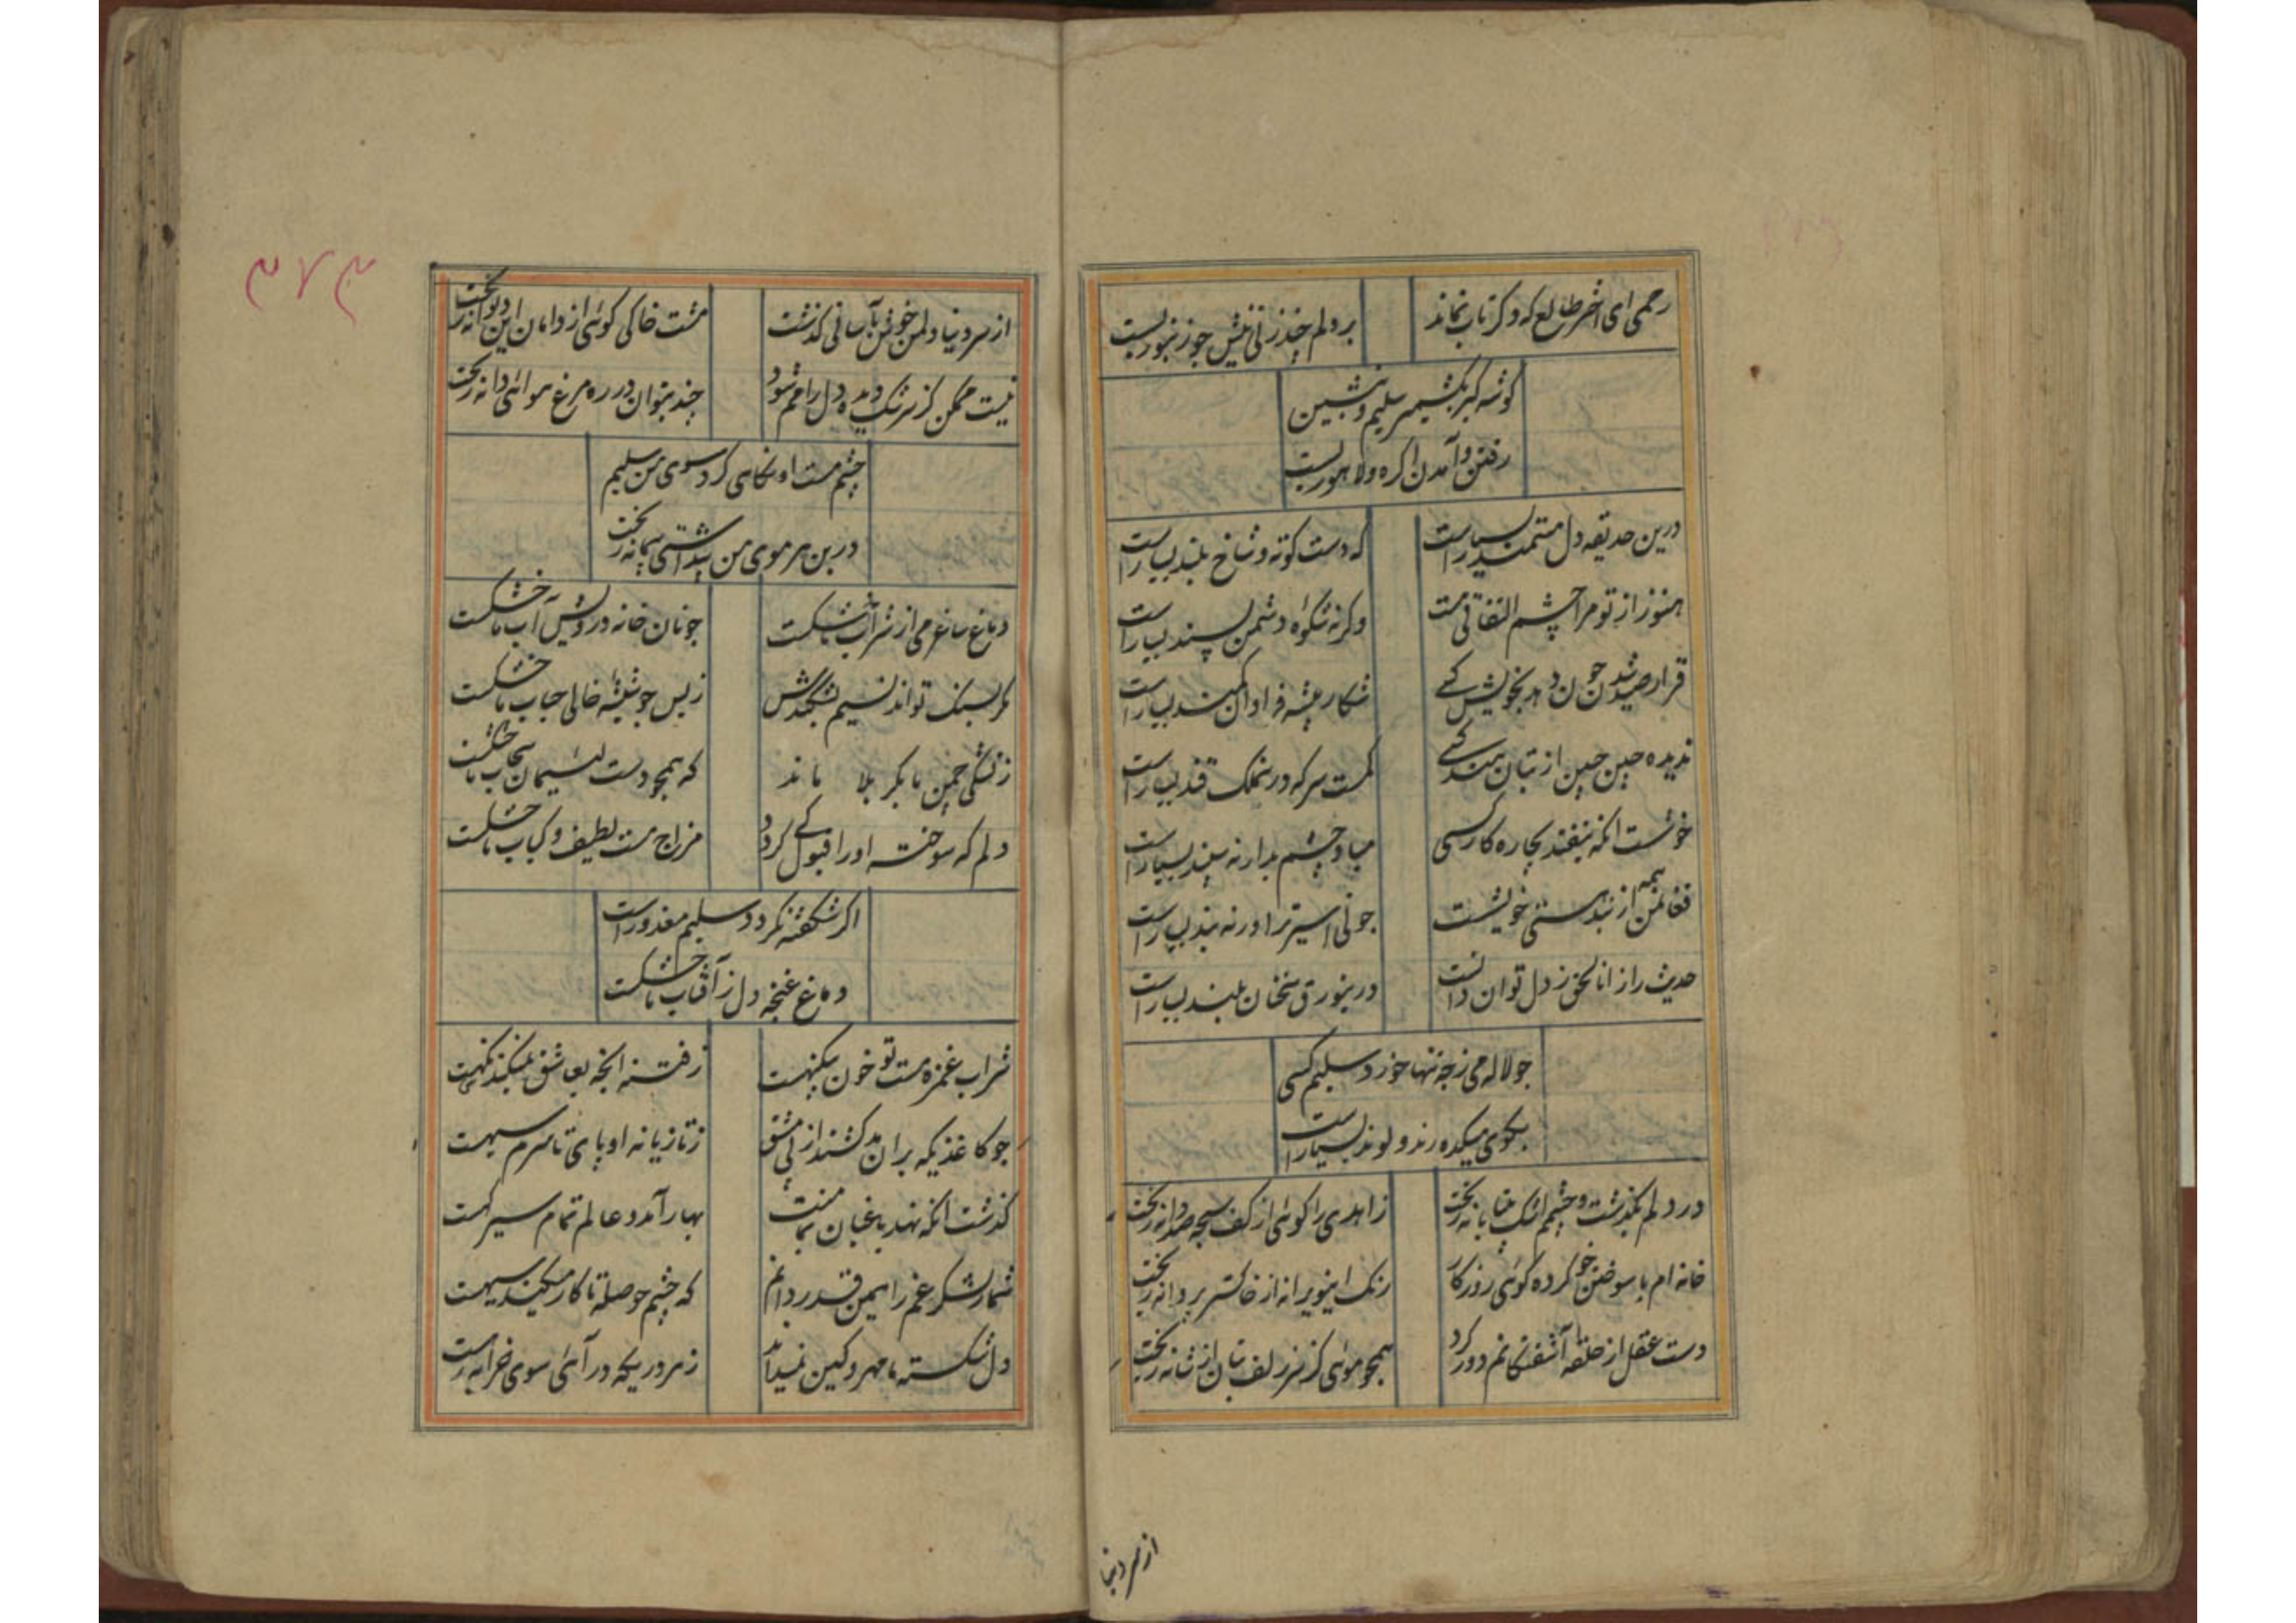 رحمی ای اختر طالع که دگر تاب نماند
بر دلم چند زنی نیش چو زنبور بست
گوشه گیر بکشمیر سلیم و بنشین
رفتن و آمدن اکره و لاهور بست
درین حدیقه دل مستمند بسیار است
که دست کوته و شاخ بلند بسیار است
هنوز از تو مرا چشم التفاتی هست
وگرنه شکوه دشمن پسند بسیار است
قرار صید شدن چون دهد بخویش کسے
شکار پیشه فراوان کمند بسیار است
ندیده چین جبین از بتان هند کسے
کمست سرکه درین ملک قند بسیار است
خوشست انکه نیفتد بچاره کار کسی
مباد چشم بد ار نه سپند بسیار است
فغانمن همه از بند هستی خویشست
چو نی اسیر ترا ورنه بند بسیار است
حدیث راز اناالحق ز دل توان دانست
درین ورق سخنان بلند بسیار است
چو لاله می ز چه تنها خورد سلیم کسی
بکوی میکده رند و لوند بسیار است
درد دلم بگذشت و چشمم اشک بیتابانه ریخت
زاهدی را گوئی از کف سبحه صد دانه ریخت
خانه ام با سوختن خو کرده گوئی روزگار
رنگ این ویرانه از خاکستر پروانه ریخت
دست عقل از حلقه آشفتگانم دور کرد
همچو موئی کز سر زلف بتان از شانه ریخت
از سر دنیا
۳۷۳
از سر دنیا دلمن خوش بآسانی گذشت
مشت خاکی گوئی از دامان این دیوانه ریخت
نیست ممکن کز سرشک دیده دل رامم شود
چند بتوان در ره مرغ هوائی دانه ریخت
چشم مست او نگاهی کرد سوی من سلیم
در بن هر موی من پنداشتی پیمانه ریخت
دماغ ساغر می از شراب ما خشکست
چو نان خانه درویش آب ما خشکست
مگر بسنگ تواند نسیم بشکندش
ز بس چو شیشه خالی حباب ما خشکست
ز تشنگی چمن ما بکربلا ماند
که همچو دست لئیمان سحاب ما خشکست
دلم که سوخته او را قبول کے گردد
مزاج مست لطیف و کباب ما خشکست
اگر شکفته نگردد سلیم معذور است
دماغ غنچه دل ز آفتاب ما خشکست
شراب غمزه مست تو خون بیگنهست
ز فتنه انچه بعاشق نمیکند نگهست
چو کاغذیکه بران مد کشند از پی مشق
ز تازیانه او پای تا سرم سیهست
گذشت انکه نهد باغبان بما منت
بهار آمد و عالم تمام سیرگهست
شمار لشکر غم را همین قدر دانم
که چشم حوصله تا کار میکند سیهست
دل شکسته ما مهر و کین نمیداند
ز هر دریچه در آئی سوی خرابه رهست